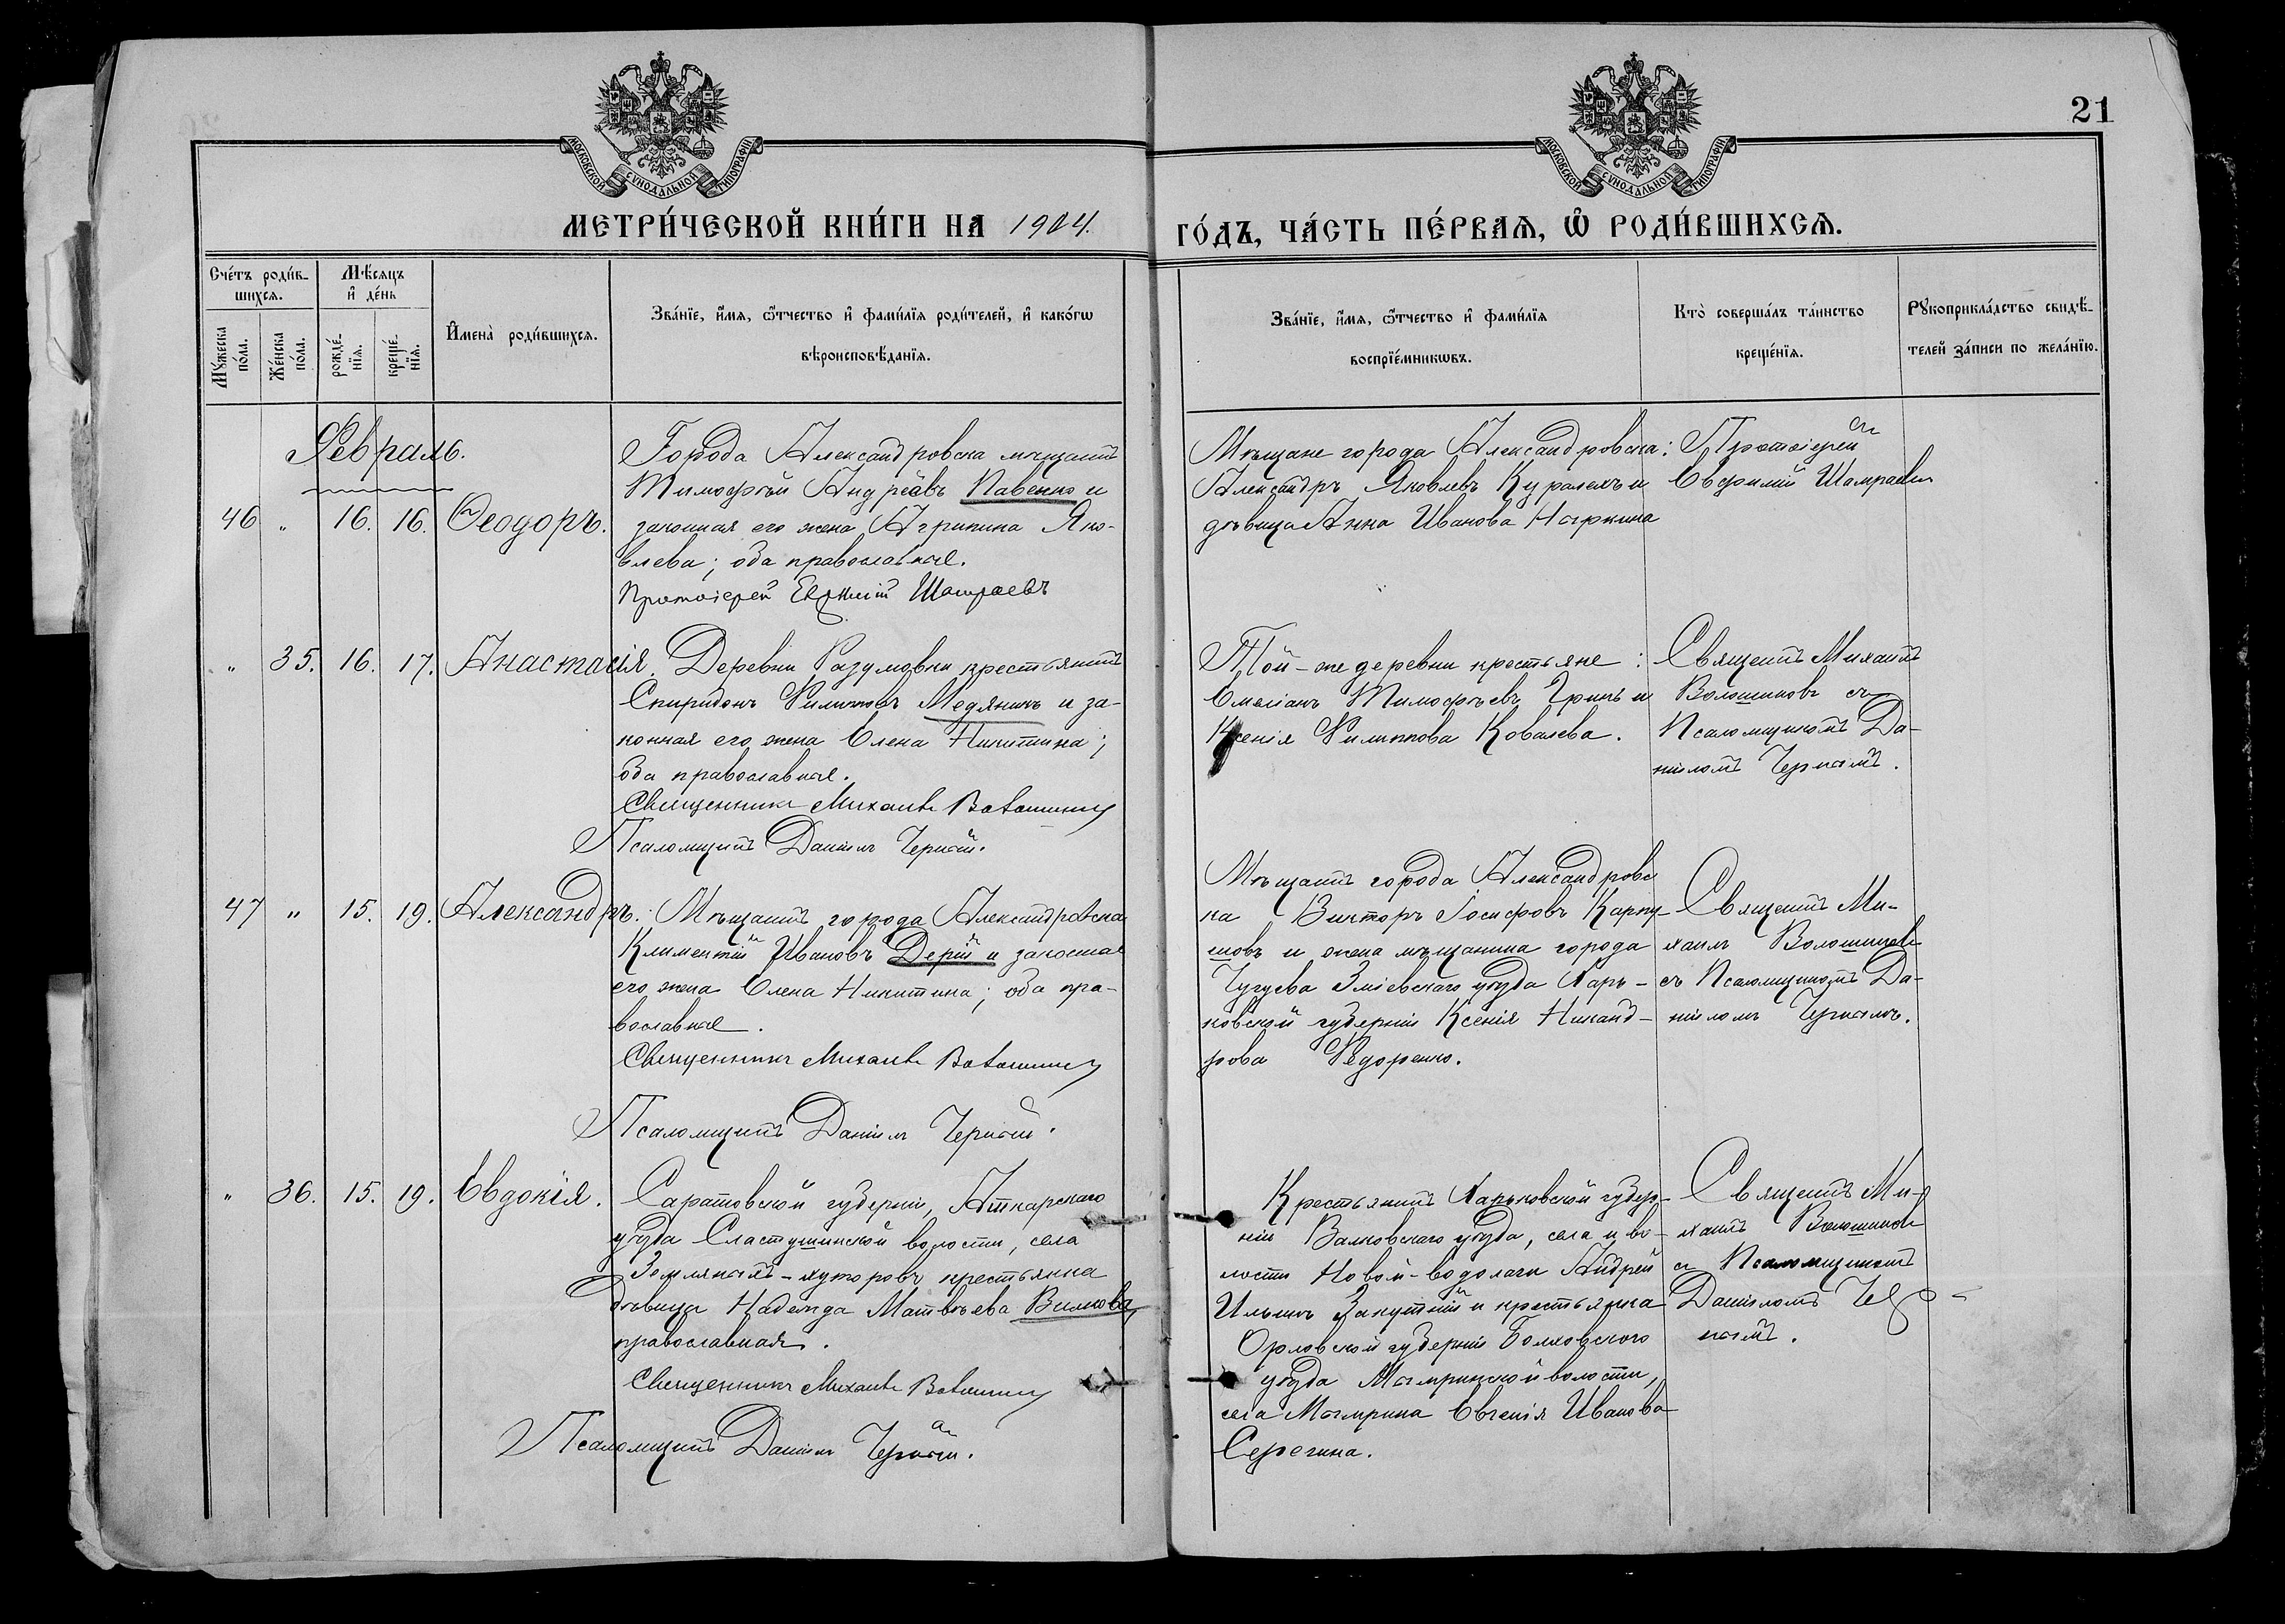 21
МОСКОВСКОЙ СѴНОДАЛЬНОЙ ТИПОГРАФІИ
МОСКОВСКОЙ СѴНОДАЛЬНОЙ ТИПОГРАФІИ
МЕТРИ́ЧЕСКОЙ КНИ́ГИ НА 1904.
ГО́ДЪ, ЧА́СТЬ ПЕ́РВАѦ, Ѽ РОДИ́ВШИХСѦ.
Сче́тъ роди́в-
шихсѧ.
Мѣ́сѧцъ
и҆ де́нь
Мꙋ́жеска
по́ла.
Же́нска
по́ла.
рожде́-
нїѧ.
креще́-
нїѧ.
И҆мена̀ роди́вшихсѧ.
Зва́нїе, и҆́мѧ, ѻ҆́тчество и҆ фами́лїѧ роди́телей, и҆ како́гѡ
вѣроисповѣ́данїѧ.
Зва́нїе, и҆́мѧ, ѻ҆́тчество и҆ фами́лїѧ
воспрїе́мникѡвъ.
Кто̀ соверша́лъ та́инство
креще́нїѧ.
Рꙋкоприкла́дство свидѣ́-
телей за́писи по жела́нїю.
Февраль.
46 " 16. 16. Ѳеодоръ.
Города Александровска мѣщанинъ
Тимофей Андреевъ Павенко и
законная его жена Агрипина Яко-
влева; оба православные.
Протоіерей Евфимій Шамраевъ
Мѣщане города Александровска:
Александръ Яковлевъ Куралехъ и
дѣвица Анна Иванова
Протоіерей
Евфимій Шамраевъ
" 35. 16. 17. Анастасія.
Деревни Разумовки крестьянинъ
Спиридонъ Филиповъ Медяникъ и за-
конная его жена Елена Никитина;
оба православные.
Священникъ Михаилъ Волошиновъ
Псаломщикъ Даніилъ Черный.
Той-же деревни крестьяне:
Емеліанъ Тимофѣевъ Гринь и
Ксенія Филиппова Ковалева.
Священ. Михаилъ
Волошиновъ съ
Псаломщикомъ Да-
ніиломъ Чернымъ.
47 " 15. 19. Александръ.
Мѣщанинъ города Александровска
Климентій Ивановъ Дерій и законная
его жена Елена Никитина; оба пра-
вославные.
Священникъ Михаилъ Волошиновъ
Псаломщикъ Даніилъ Черный.
Мѣщанинъ города Александровс
ка Викторъ Іосифовъ Карпу-
шовъ и жена мѣщанина города
Чугуева Зміевскаго уѣзда Харь-
ковской губерніи КсеніяНиканд-
рова Федоренко.
Священ. Ми-
хаилъ Волошиновъ
съ Псаломщикомъ Да-
ніиломъ Чернымъ.
" 36. 15. 19. Евдокія.
Саратовской губерніи, Аткарскаго
уѣзда Сластушинской волости, села
Земляныхъ-хуторовъ крестьянка
дѣвица Надежда Матвѣева Вилкова,
православная.
Священникъ Михаилъ Волошиновъ
Псаломщикъ Даніилъ Черный.
Крестьянинъ Харьковской губер-
ніи Валковскаго уѣзда, села и во-
лости Новой-водолаги Андрей
Ильинъ Закутній и крестьянка
Орловской губерніи Болховского
уѣзда Мымринской волости,
села Мымрина Евгенія Иванова
Серегина.
Священ. Ми-
хаилъ Волошиновъ
съ Псаломщикомъ
Даніиломъ Чер-
нымъ.